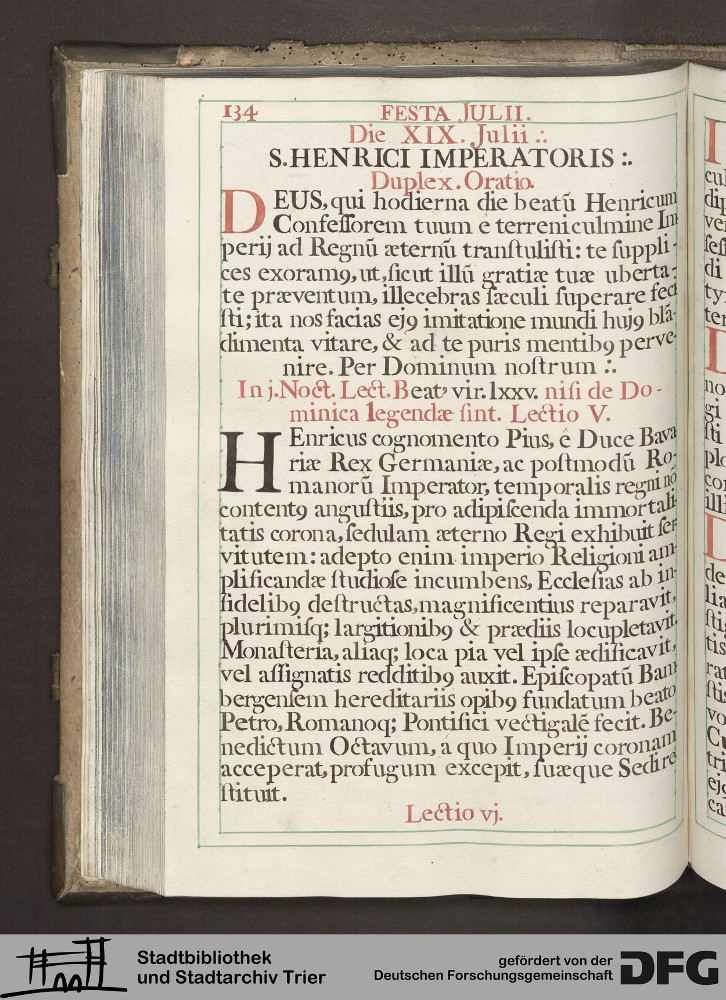 134 FESTA JULII.
Die XIX. Julii ∴
S. HENRICI IMPERATORIS :.
Duplex. Oratio.
DEUS, qui hodierna die beatū Henricum
Confeſſorem tuum e terreni culmine Im
perij ad Regnū æternū tranſtuliſti: te ſuppli-
ces exoram9, ut, ſicut illū gratiæ tuæ uberta-
te præventum, illecebras ſæculi ſuperare feci
ſti; ita nos facias ej9 imitatione mundi huj9 blā-
dimenta vitare, & ad te puris mentib9 perve-
nire. Per Dominum noſtrum ∴
In j. Noct. Lect. Beat9 vir. lxxv. niſi de Do-
minica legendæ ſint. Lectio V.
HEnricus cognomento Pius, e Duce Bava
riæ Rex Germaniæ, ac poſtmodū Ro-
manorū Imperator, temporalis regni nō
content9 anguſtiis, pro adipiſcenda immortali-
tatis corona, ſedulam æterno Regi exhibuit ſer
vitutem: adepto enim imperio Religioni am-
plificandæ ſtudioſe incumbens, Eccleſias ab in-
fidelib9 deſtructas, magnificentius reparavit,
plurimiſq; largitionib9 & prædiis locupletavit.
Monaſteria, aliaq; loca pia vel ipſe ædificavit,
vel aſſignatis redditib9 auxit. Epiſcopatū Bam
bergenſem hereditariis opib9 fundatum beato
Petro, Romanoq; Pontifici vectigalē fecit. Be-
nedictum Octavum, a quo Imperij coronam
acceperat, profugum excepit, ſuæque Sedi re
ſtituit.
Lectio vj.
Stadtbibliothek
und Stadtarchiv Trier
gefördert von der
Deutschen Forschungsgemeinschaft
DFG